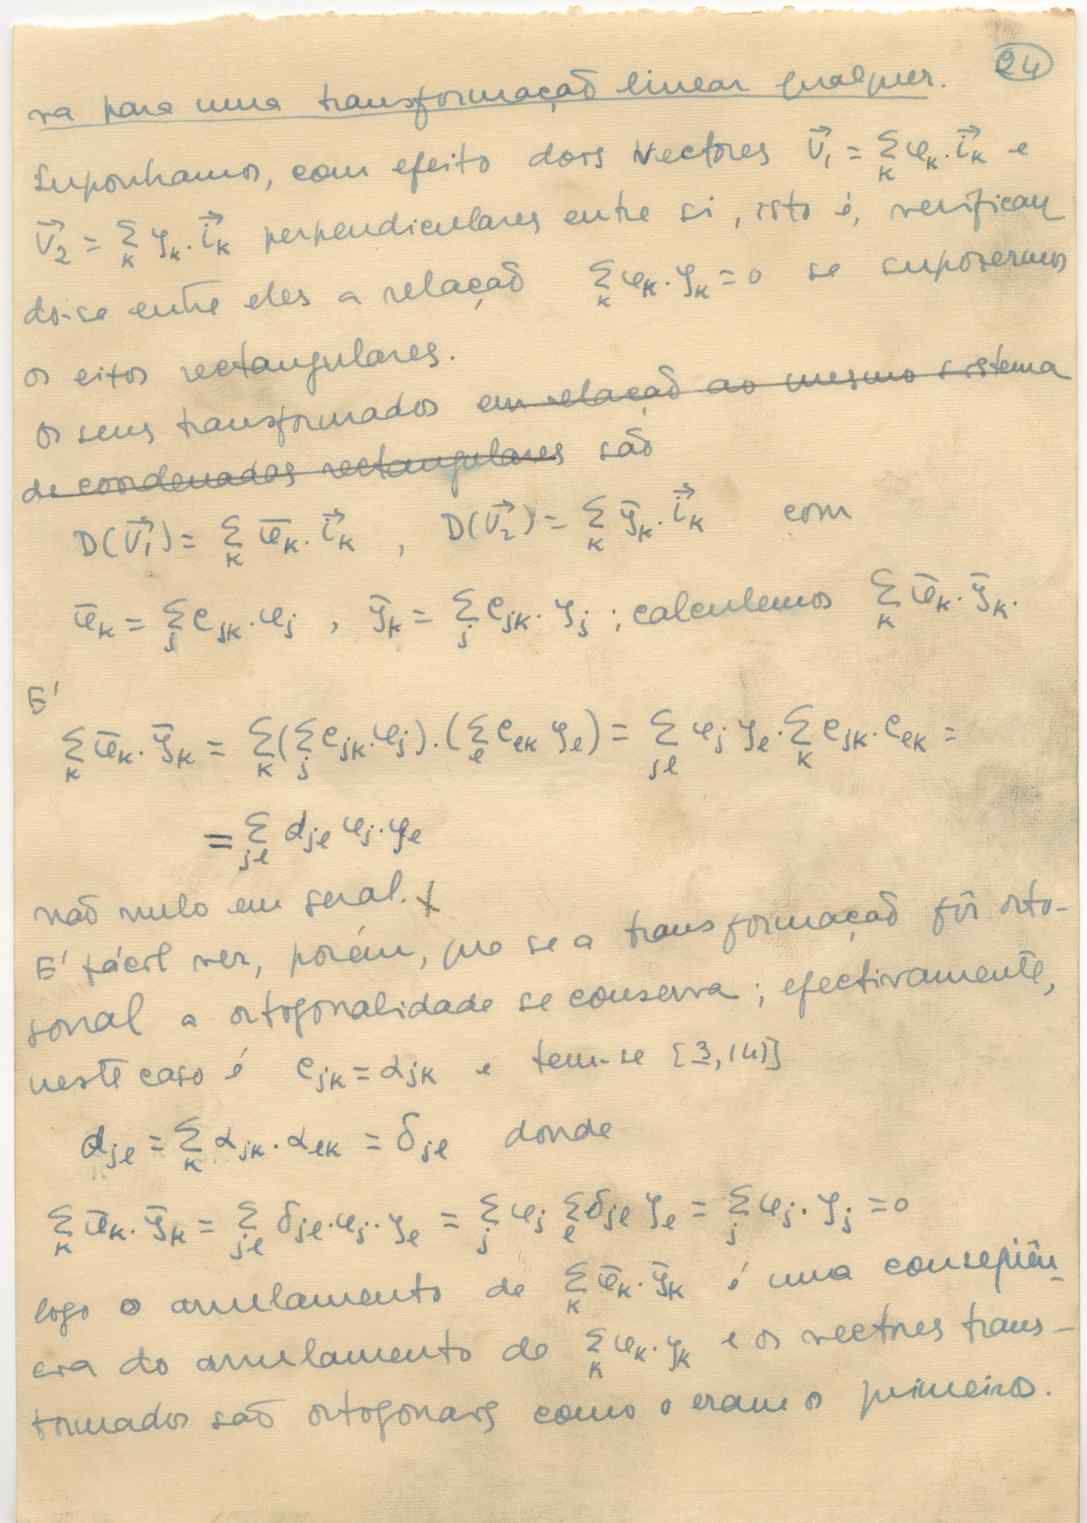 24
va para uma transformação linear qualquer.
Suponhamos, com efeito dois vectores V⃗₁ = Σₖ φₖ. i⃗ₖ e
V⃗₂ = Σₖ ψₖ. i⃗ₖ perpendiculares entre si, isto é, verifican
do-se entre eles a relação Σₖ φₖ. ψₖ = 0 se supozermos
os eixos rectangulares.
Os seus transformados em relação ao mesmo sistema
de coordenadas rectangulares são
D(V⃗₁) = Σₖ φ̄ₖ. i⃗ₖ , D(V⃗₂) = Σₖ ψ̄ₖ. i⃗ₖ com
φ̄ₖ = Σⱼ cⱼₖ.φⱼ , ψ̄ₖ = Σⱼ cⱼₖ. ψⱼ ; calculemos Σₖ φ̄ₖ. ψ̄ₖ.
E'
Σₖ φ̄ₖ. ψ̄ₖ = Σₖ (Σⱼ cⱼₖ.φⱼ).(Σₗ cₗₖ ψₗ) = Σⱼₗ φⱼ ψₗ. Σₖ cⱼₖ. cₗₖ =
= Σⱼₗ dⱼₗ φⱼ. ψₗ
não nulo em geral.
E' fácil ver, porém, que se a transformação fôr orto-
gonal a ortogonalidade se conserva ; efectivamente,
neste caso é cⱼₖ = αⱼₖ e tem-se [3,14)]
dⱼₗ = Σₖ αⱼₖ. αₗₖ = δⱼₗ donde
Σₖ φ̄ₖ. ψ̄ₖ = Σⱼₗ δⱼₗ.φⱼ. ψₗ = Σⱼ φⱼ Σₗ δⱼₗ ψₗ = Σⱼ φⱼ. ψⱼ = 0
logo o anulamento de Σₖ φ̄ₖ. ψ̄ₖ é uma consequên
cia do anulamento de Σₖ φₖ. ψₖ e os vectores trans-
formados são ortogonais como o eram os primeiros.